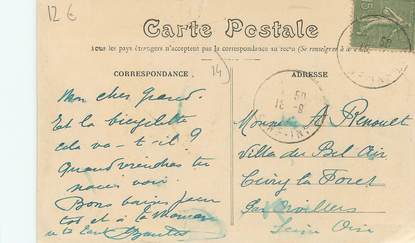 12 €
Carte Postale
Tous les pays étrangers n'acceptent pas la correspondance au recto (Se renseigner à la
14)
CORRESPONDANCE
ADRESSE
Mon cher grand.
Et la bicyclette
cela va-t-il ?
Quand viendras tu
nous voir.
Bons baisers pour
toi et à ta Maman
Monsieur A Renoult
Villa du Bel Air
Civry la Foret
par Orvillers
Seine Oise